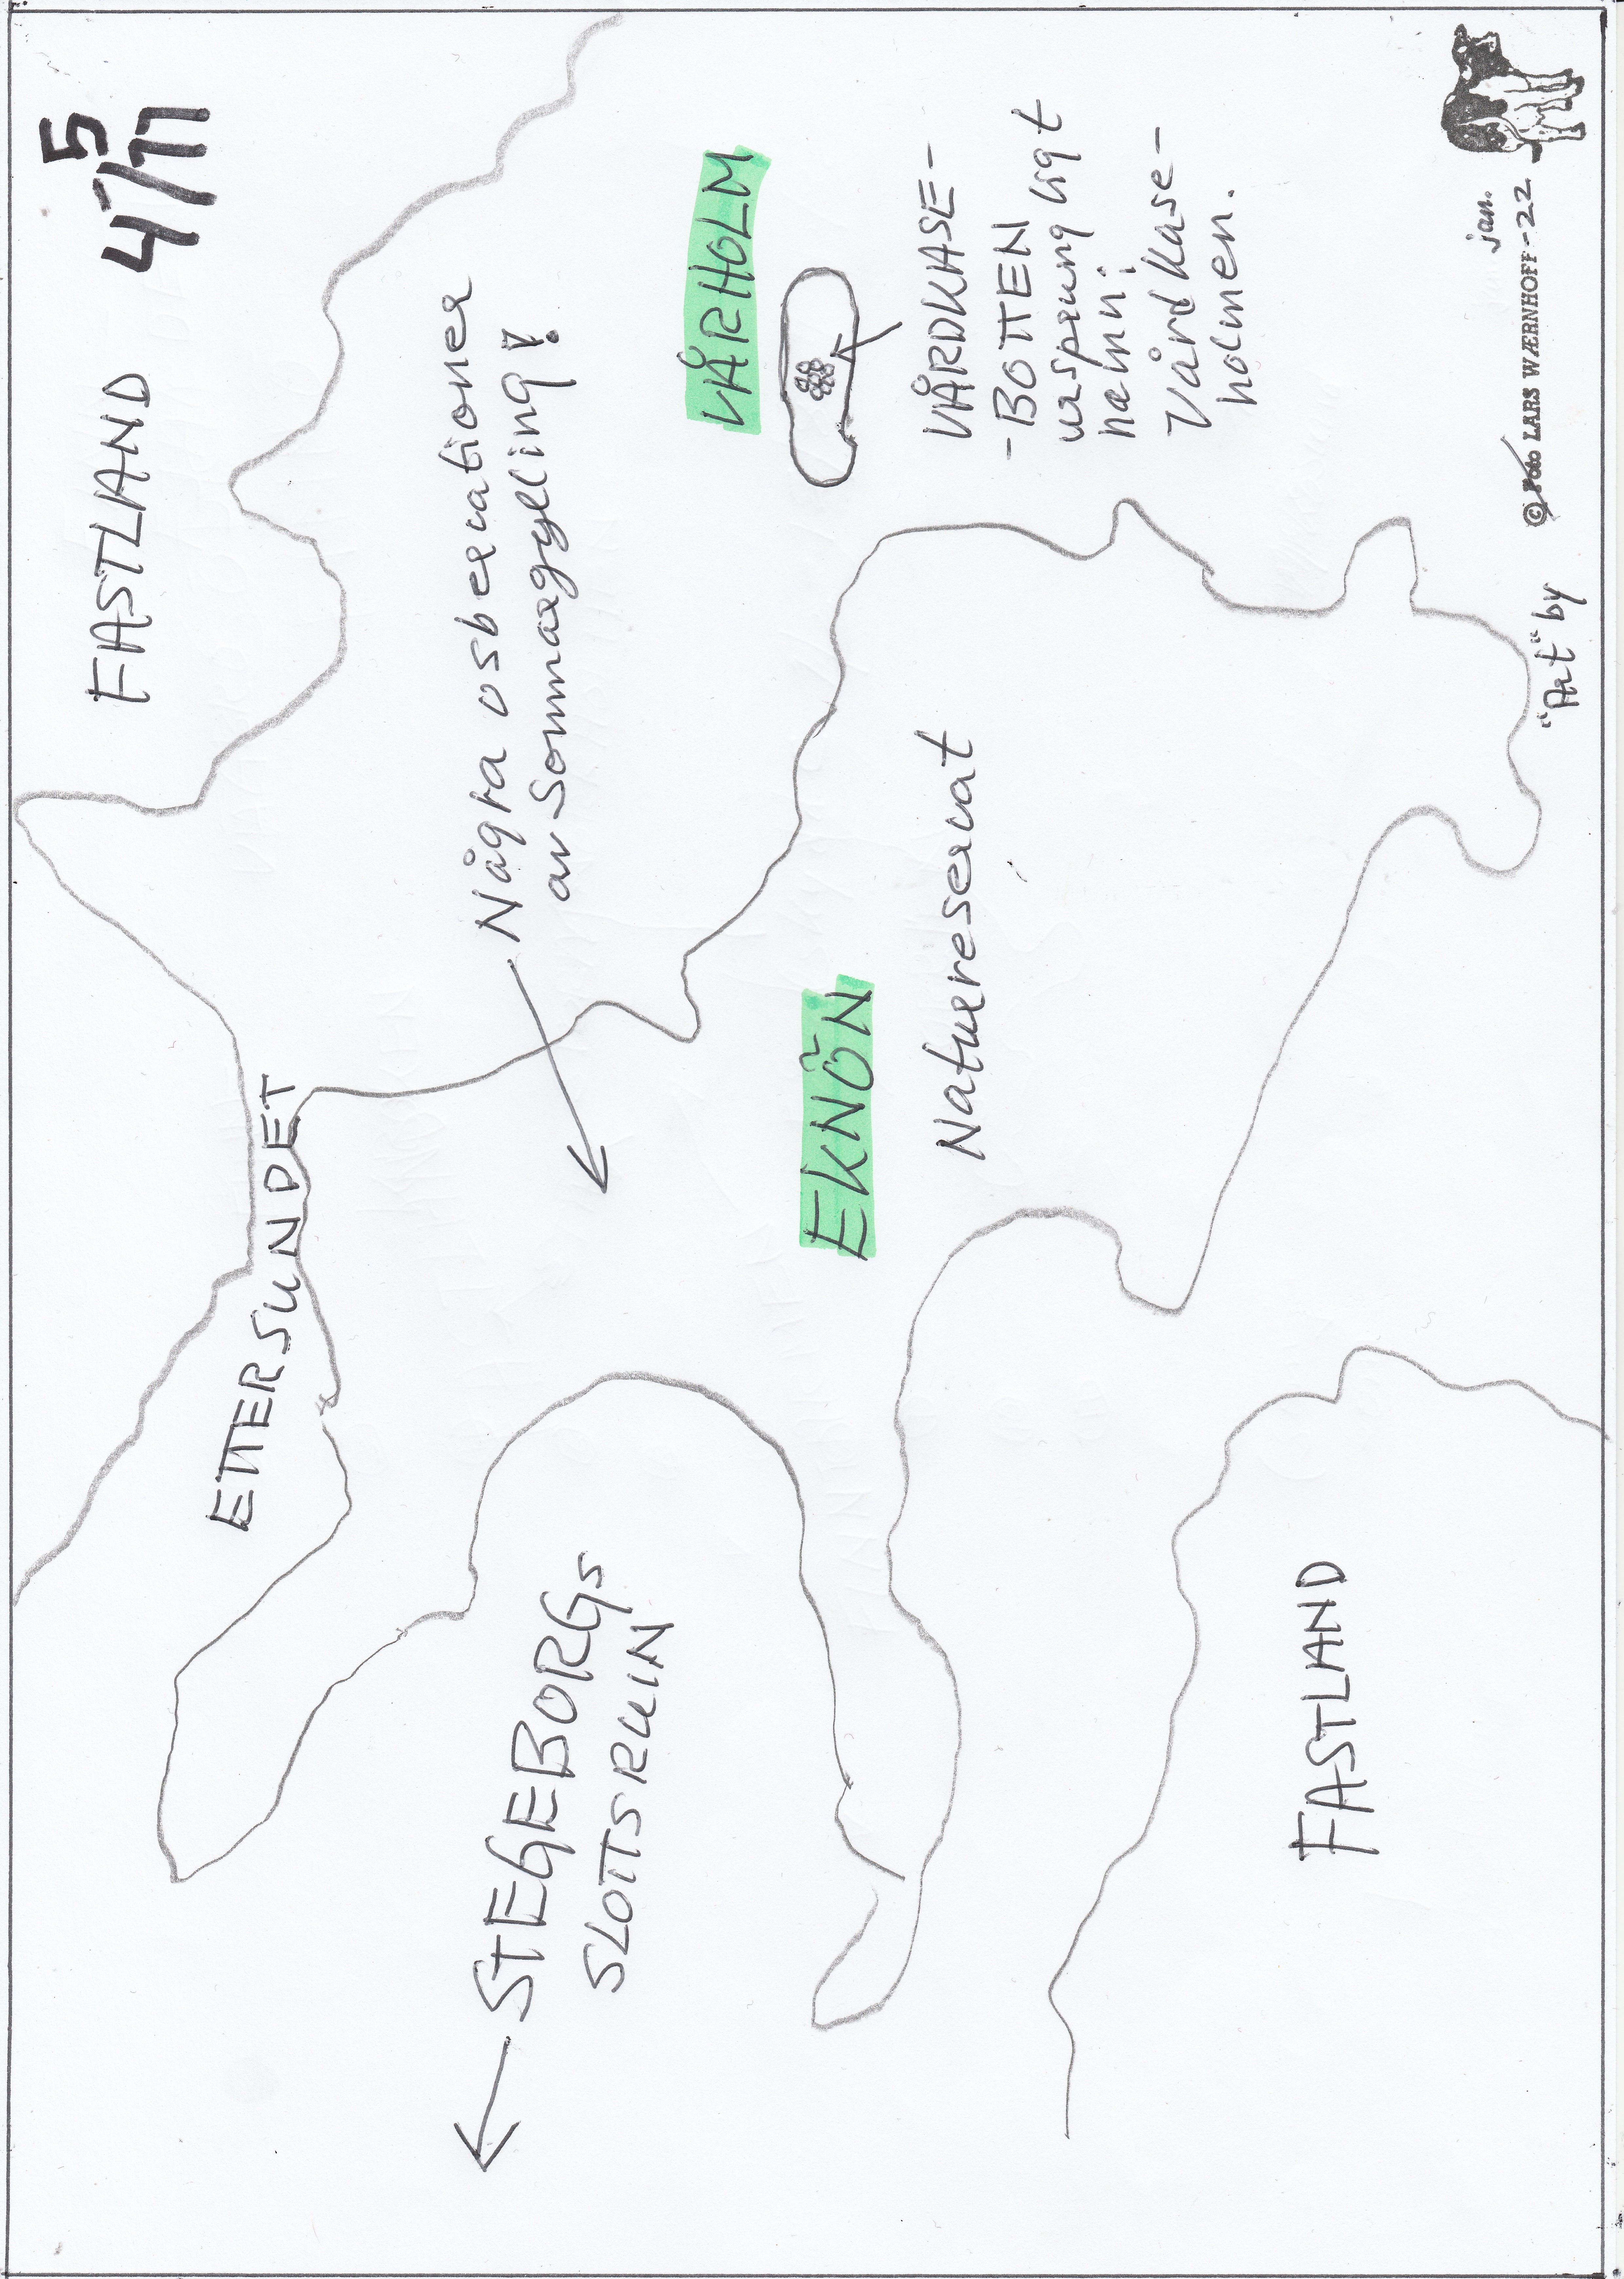 5
4/11
FASTLAND
ETTERSUNDET
Några osbervationer
av Sommargylling!
STEGEBORGS
SLOTTSRUIN
VÅRHOLM
EKNÖN
Naturreservat
VÅRDKASE-
-BOTTEN
ursprungligt
namn:
Vårdkase-
holmen.
FASTLAND
jan.
"Art" by © Foto LARS WÆRNHOFF -22